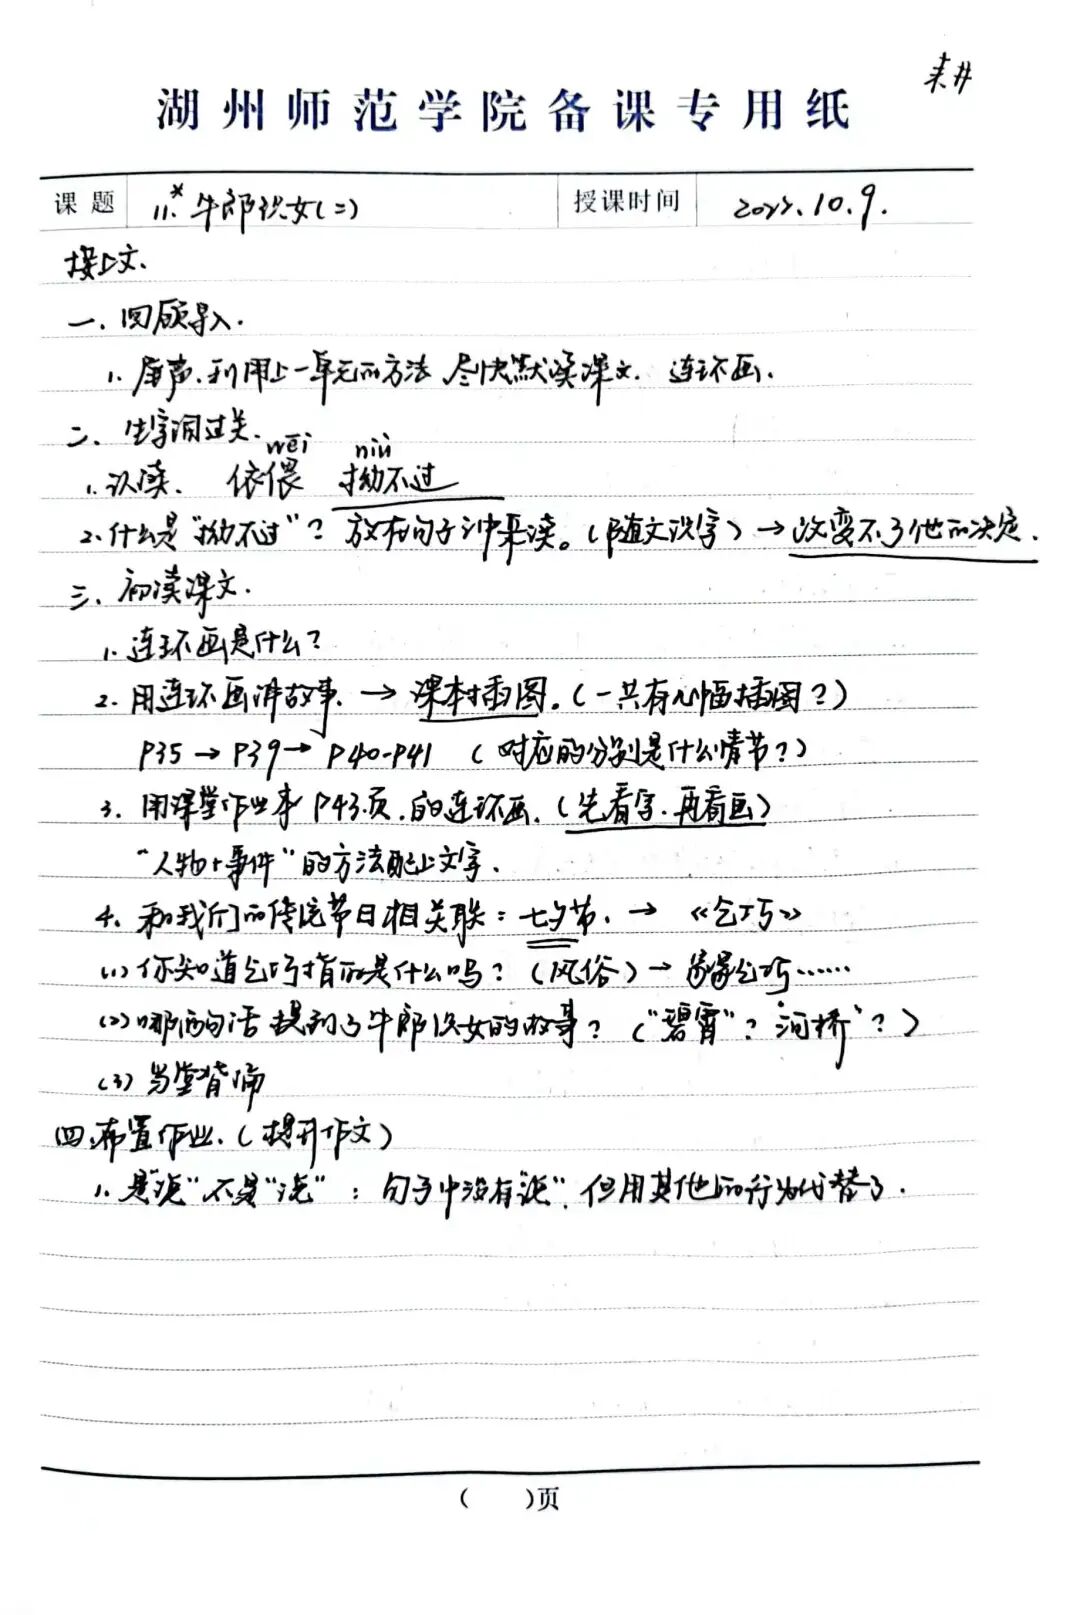 湖州师范学院备课专用纸
课题 11.* 牛郎织女(二) 授课时间 2023.10.9.
接上文.
一、回顾导入.
1. 利用上一单元的方法 尽快默读课文. 连环画.
二、生字词过关.
wēi niù
1.认读、依偎 拗不过
2.什么是"拗不过"？放在句子中来读。(随文识字)→改变不了他的决定.
三、初读课文.
1.连环画是什么？
2.用连环画讲故事.→课本插图。(一共有几幅插图？)
P35→P39→P40-P41 (对应的分别是什么情节？)
3.用课堂作业本P43页.的连环画.(先看字.再看画)
"人物+事件"的方法配上文字.
4.和我们的传统节日相关联：七夕节.→《乞巧》
(1)你知道乞巧指的是什么吗？(风俗)→ 乞巧……
(2)哪两句话提到了牛郎织女的故事？("碧霄"？河桥"？)
(3)当堂背诵
四、布置作业.(提升作文)
1.是"说"不是"说"：句子中没有"说"但用其他的行为代替了.
( )页